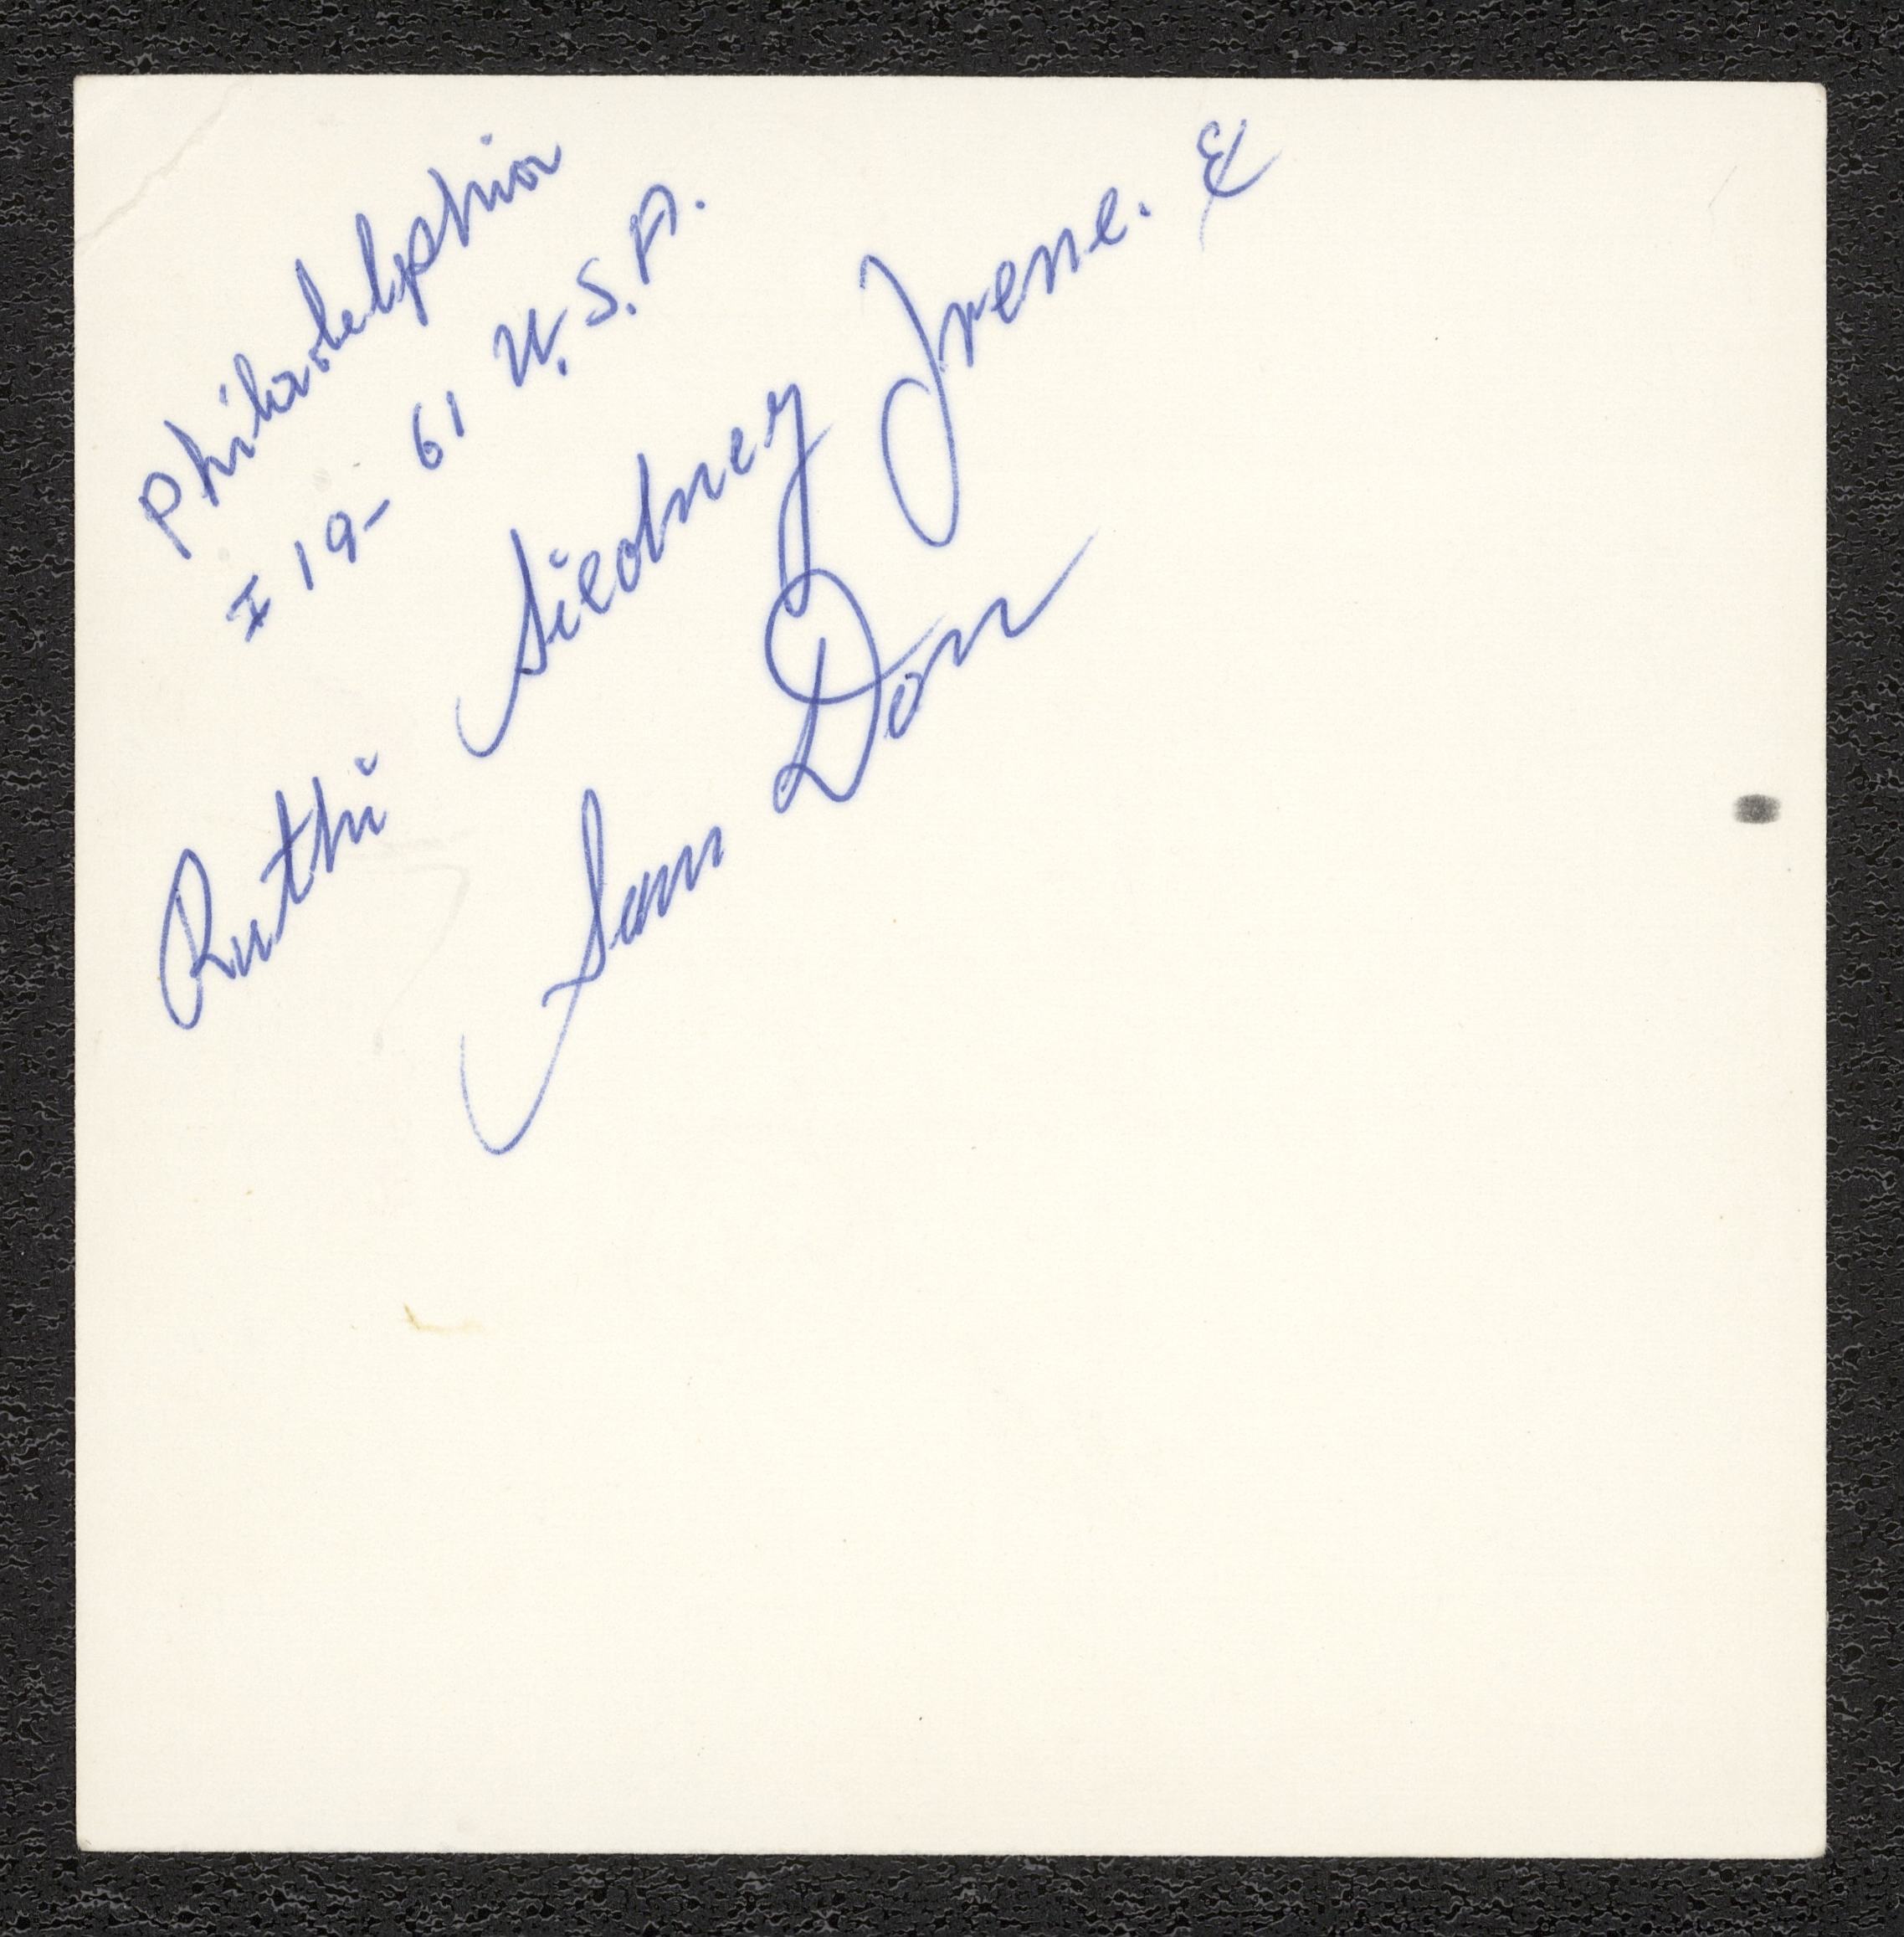 Philadelphia
I 19- 61 U.S.A.
Ruthi Siedney Irene. &
Sam Don